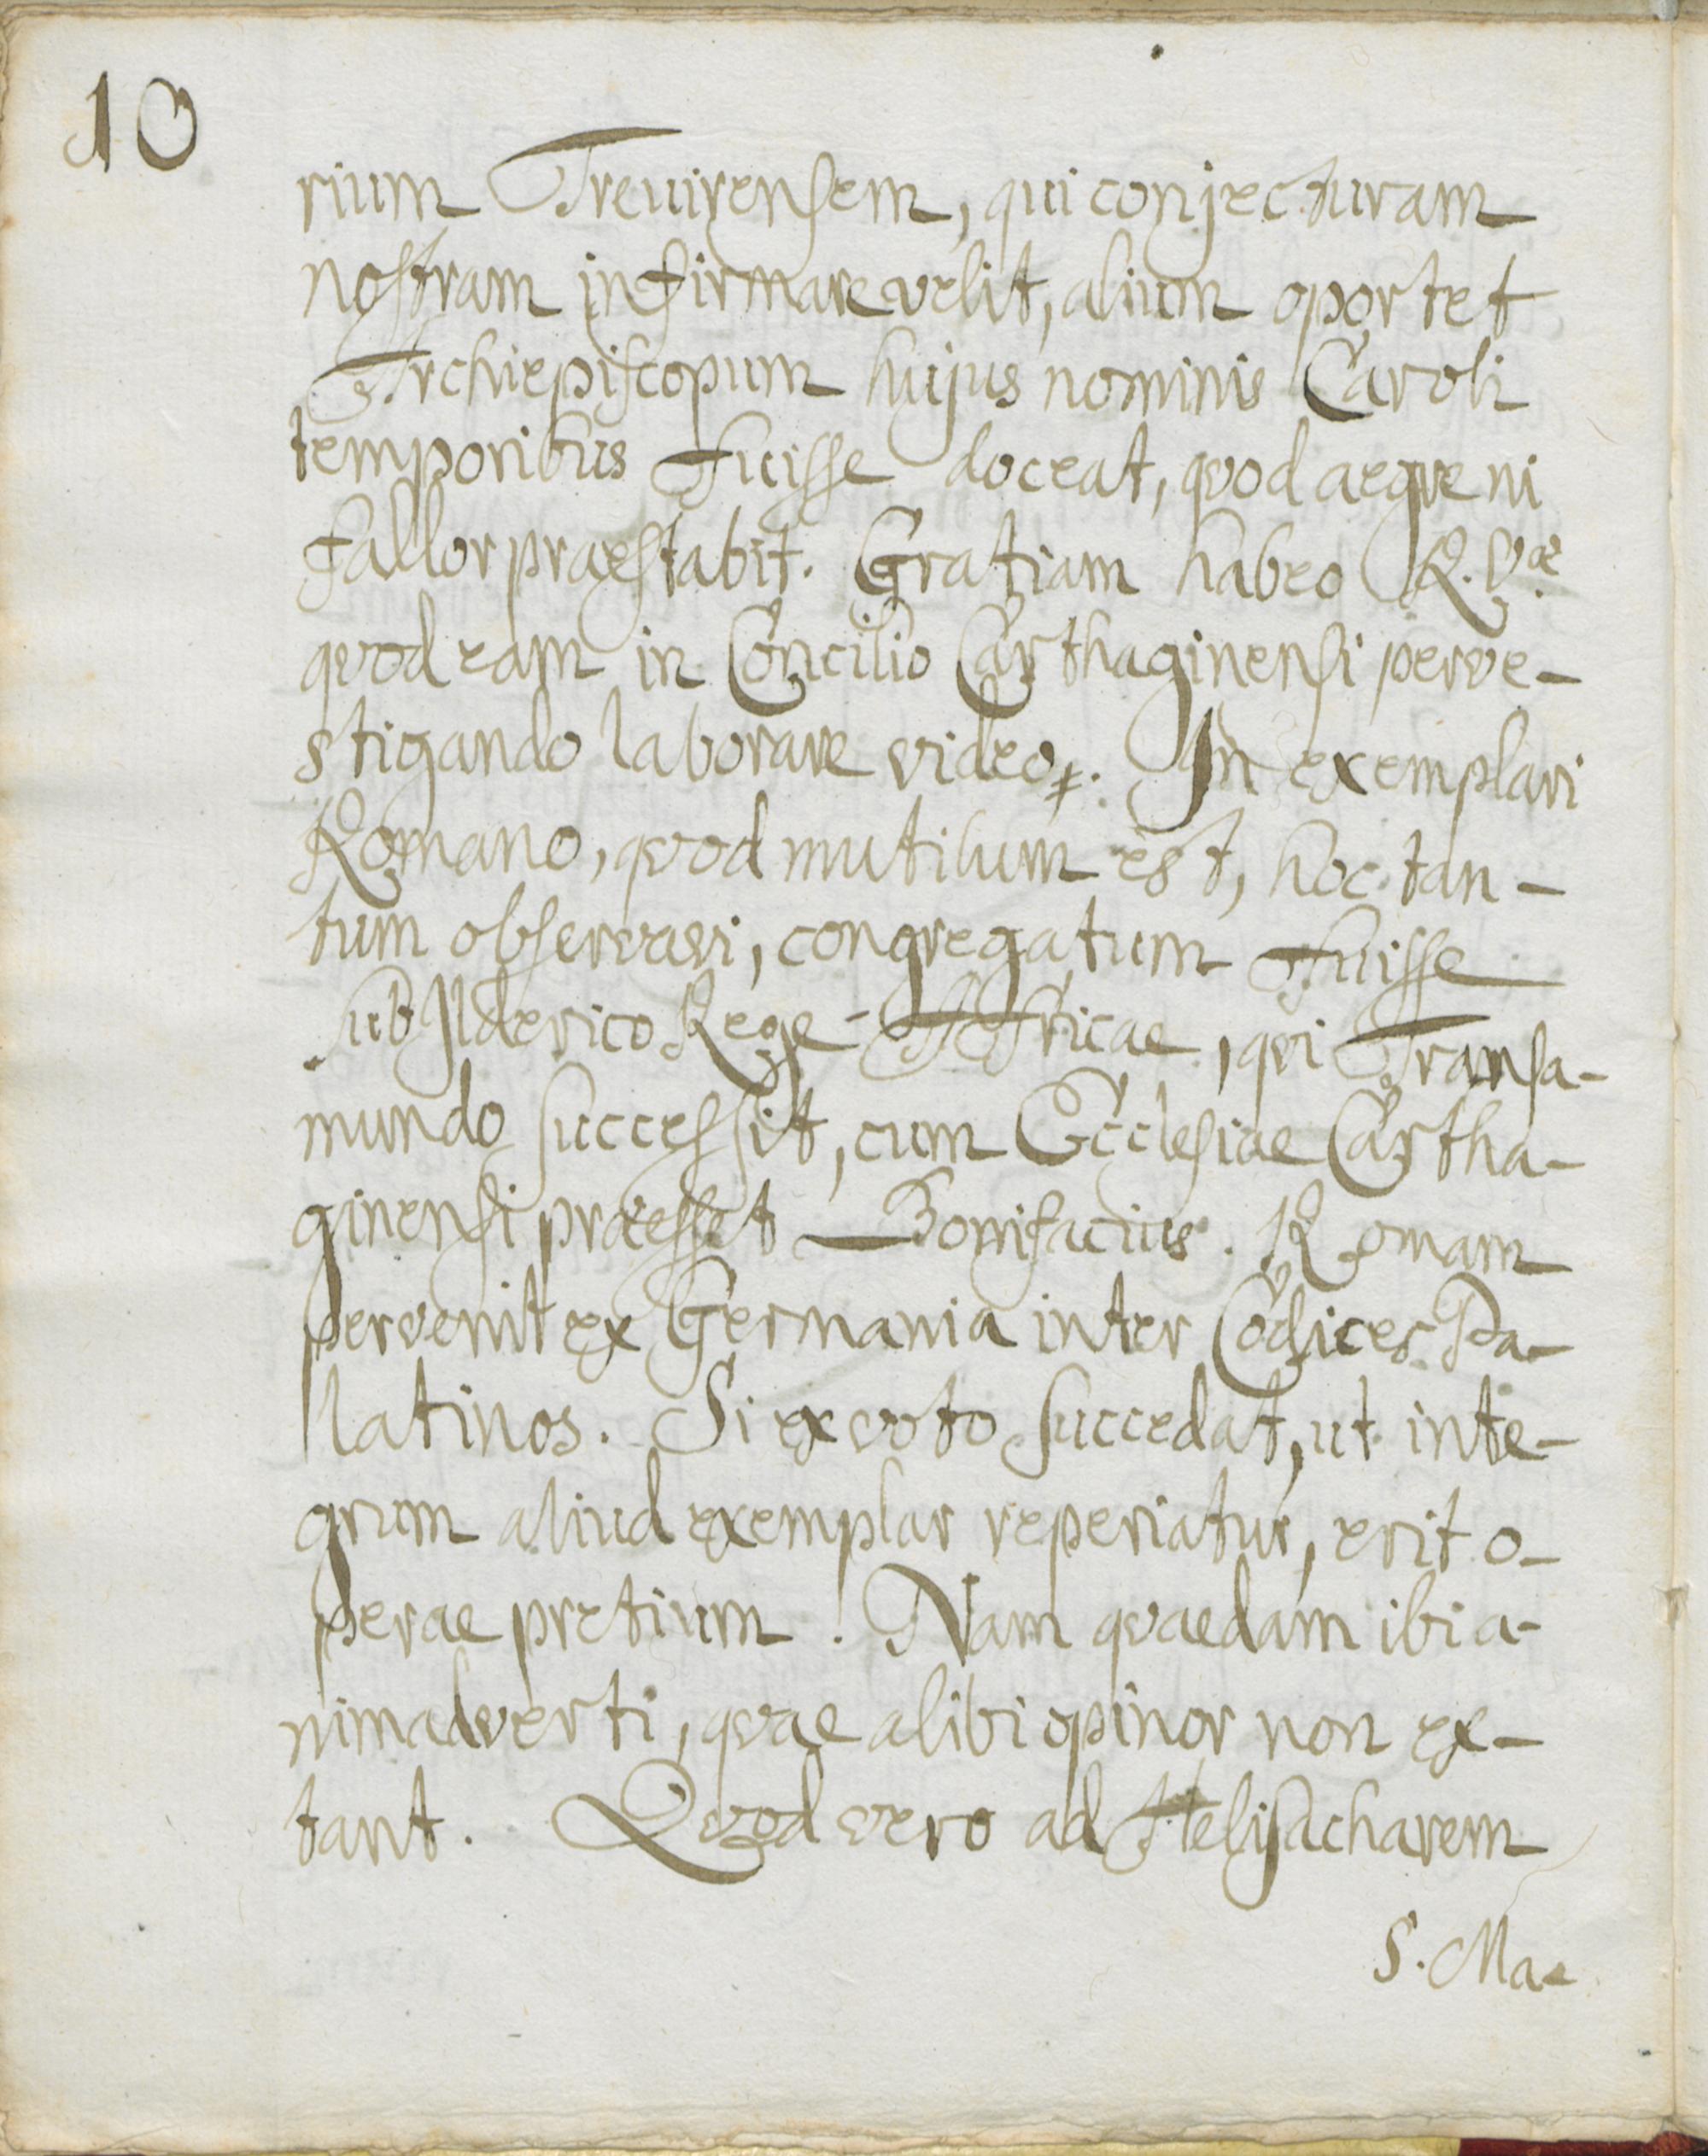 10
rium Treuirensem, qui conjecturam
nostram infirmare velit, alium oportet
Archiepiscopum hujus nominis Caroli
temporibus fuisse doceat, qvod aegre ni
fallor praestabit. Gratiam habeo R. Væ
qvod eam in Concilio Carthaginensi perve-
stigando laborare video. In exemplari
Romano, qvod mutilum est, hoc tan-
tum observavi, congregatum fuisse
sub Ilderico Rege Affricae, qvi Transa-
mundo successit, cum Ecclesiae Cartha-
ginensi praeesset Bonifacius. Romam
pervenit ex Germania inter Codices Pa-
latinos. Si ex voto succedat, ut inte-
grum aliud exemplar reperiatur, erit o-
perae pretium. Nam qvaedam ibi a-
nimadverti, qvae alibi opinor non ex-
tant. Qvod vero ad Helisacharem
S. Ma-